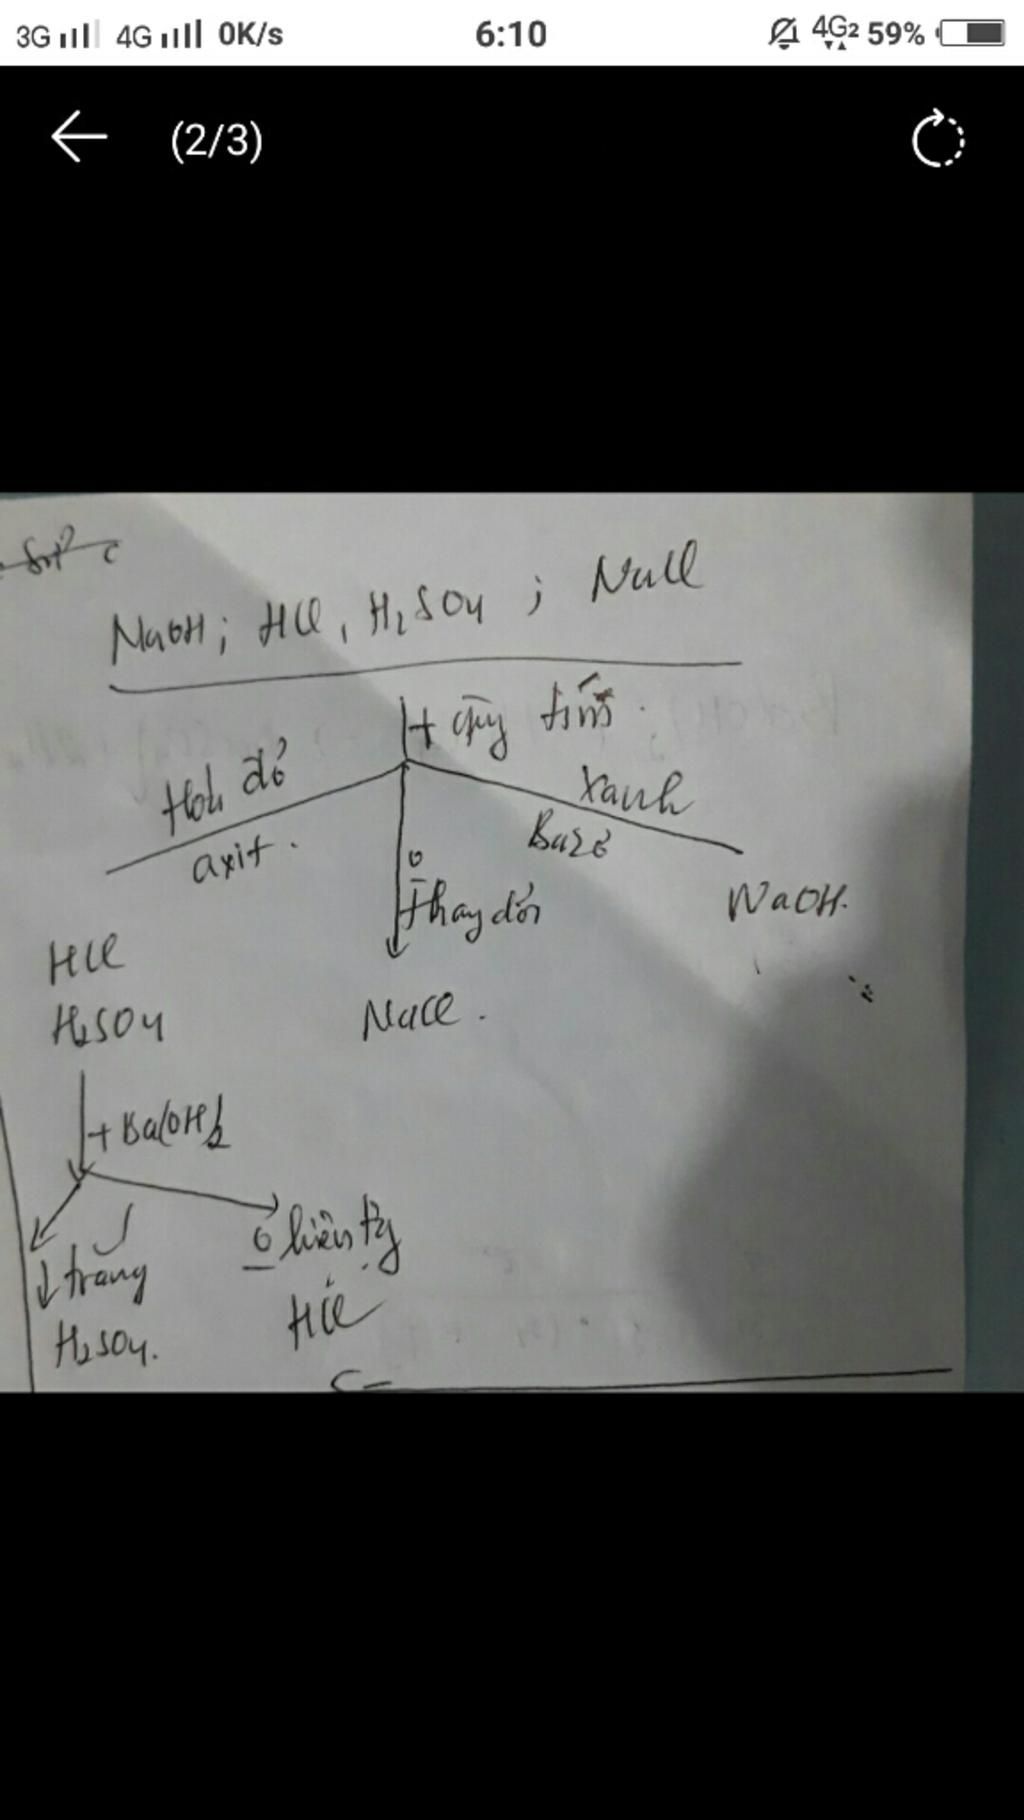 3G 4G 0K/s 6:10 4G2 59%
(2/3)
NaOH; HCl, H2SO4 ; NaCl
+ quỳ tím
Hoá đỏ
Xanh
axit.
Bazơ
ō thay đổi
NaOH.
HCl
H2SO4
NaCl.
+ Ba(OH)2
ō hiện tg
↓ trắng
HCl
H2SO4.